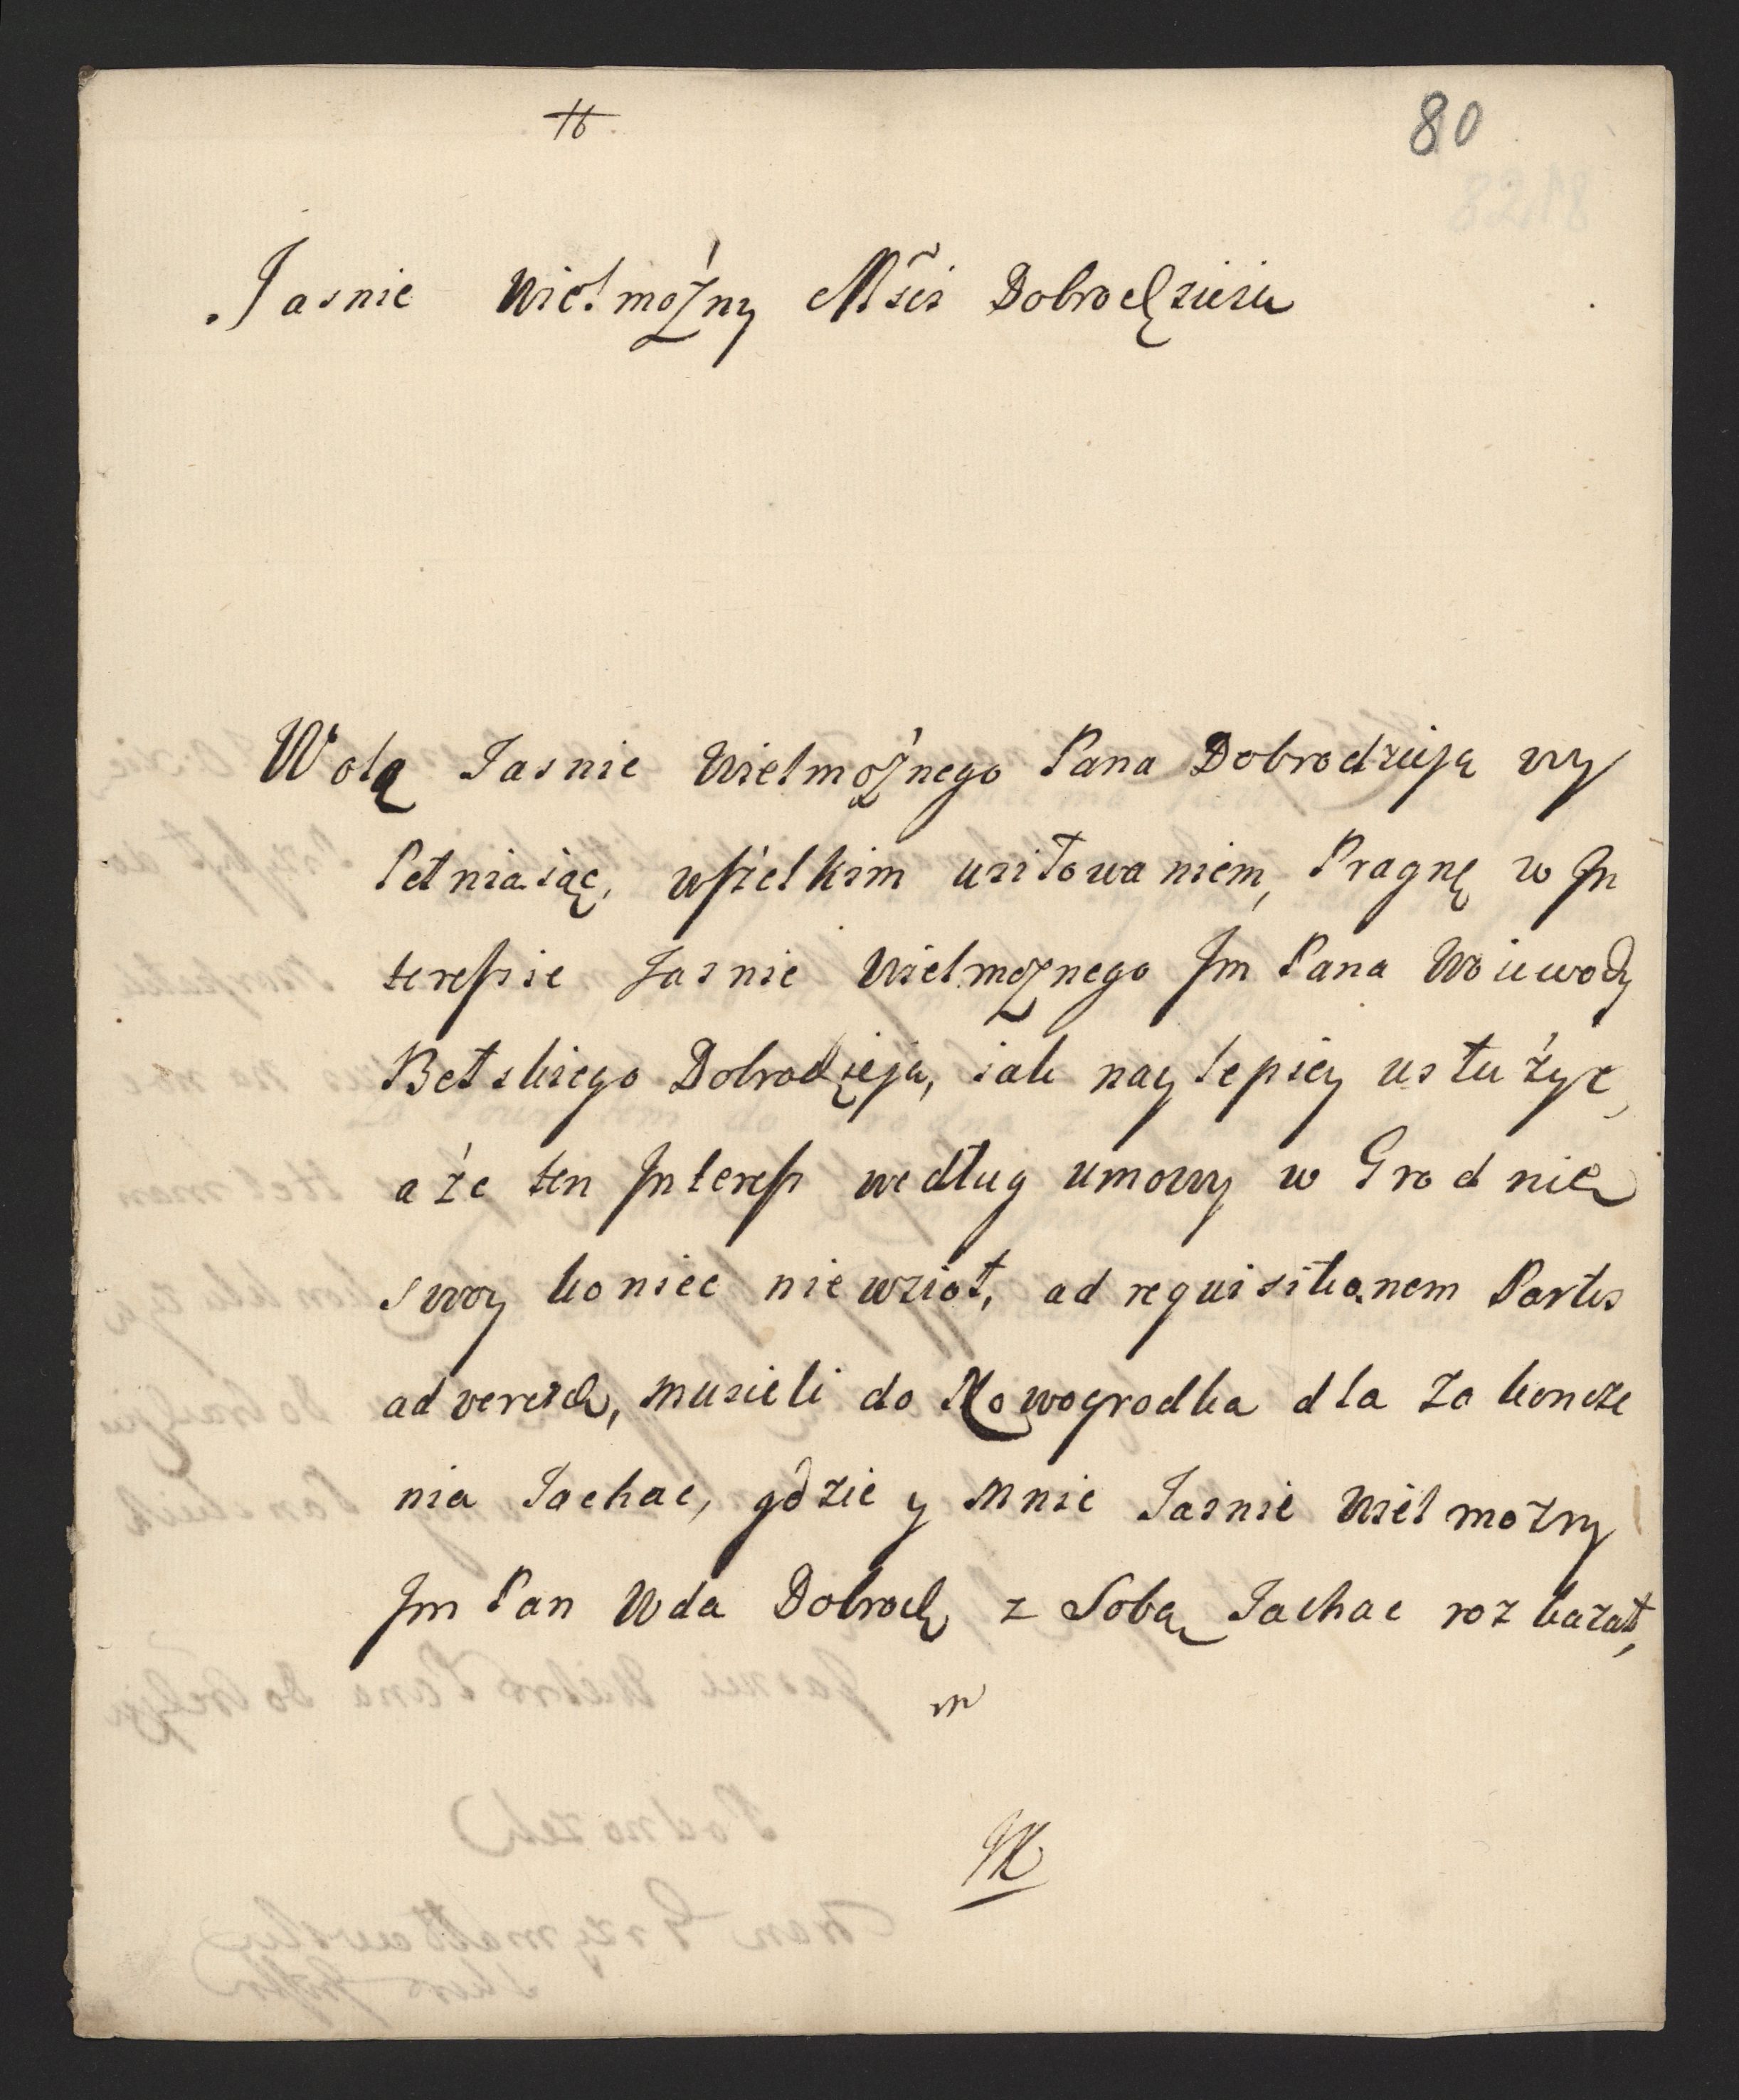 16
80
Jasnie Wielmożny Mści Dobrodzieiu
Wolą Jasnie Wielmożnego Pana Dobrodzieja wy
Pełniaiąc, wszielkim usiłowaniem, Pragnę w In
teressie Jasnie Wielmożnego Jm Pana Woiewody
Bełskiego Dobrodzieja, iak naylepiey usłużyc,
a że ten Interess według umowy w Grodnie
swoy koniec niewzioł, ad requisitionem Partis
adversae, musieli do Nowogrodka dla Zakoncze
nia Jachac, gdzie y mnie Jasnie Wielmożny
Jm Pan Wda Dobrodz z Sobą Jachac rozkazał,